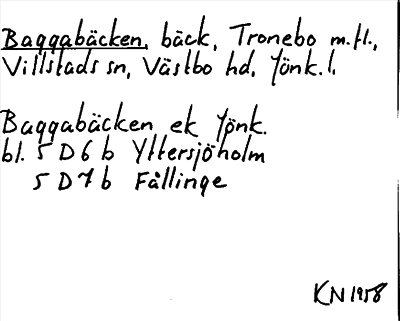 Baggabäcken, bäck, Tronebo m.fl.,
Villstads sn, Västbo hd, Jönk.l.
Baggabäcken ek Jönk.
bl. 5 D 6 b Yttersjöholm
5 D 7 b Fållinge
KN 1958